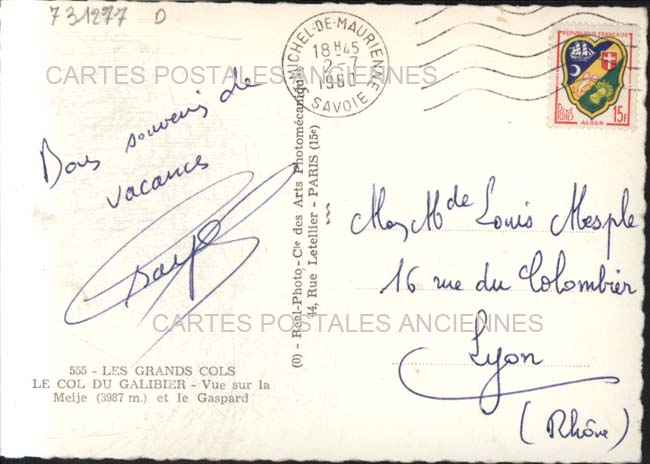 731277 D
CARTES POSTALES ANCIENNES
Sᵗ MICHEL-DE-MAURIENNE
18 H 45
2-7
1960
SAVOIE
REPUBLIQUE FRANÇAISE
POSTES
15F
ALGER
Bons souvenirs de
vacances
(0) - Real-Photo - Cie des Arts Photomécaniques
44, Rue Letellier - PARIS (15e)
M. M de Louis Mesple
16 rue du Colombier
Lyon
(Rhône)
CARTES POSTALES ANCIENNES
555 - LES GRANDS COLS
LE COL DU GALIBIER - Vue sur la
Meije (3987 m.) et le Gaspard